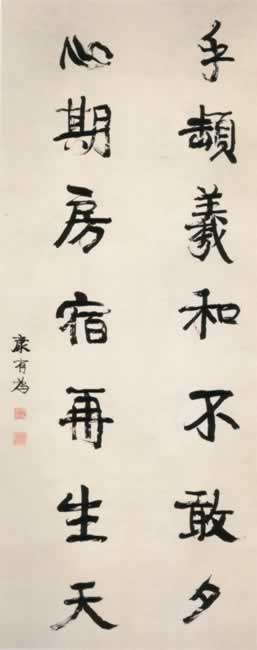 手羲和不敢夕
心期房宿再生天
康有為